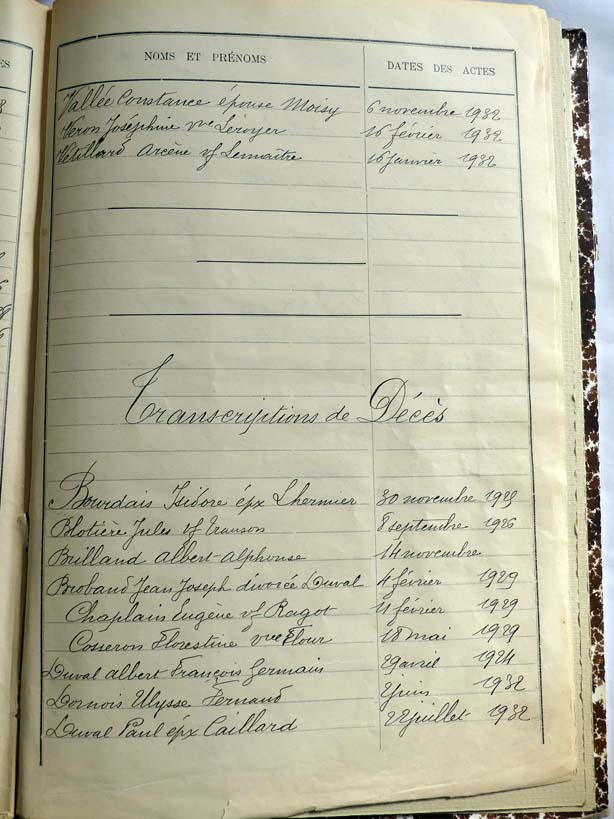 ES
NOMS ET PRÉNOMS DATES DES ACTES
Vallée Constance épouse Moisy 6 novembre 1932
Véron Joséphine vve Leroyer 16 février 1932
Vétillard Arcène vf Lemaître 16 janvier 1932
Transcriptions de Décès
Bourdais Isidore épx Lhermier 30 novembre 1925
Blotière Jules vf Transon 8 septembre 1926
Brilland Albert-Alphonse 14 novembre
Broband Jean Joseph divorcé Duval 4 février 1929
Chaplain Eugène vf Ragot 11 février 1929
Cosseron Florestine vve Flour 18 mai 1929
Duval Albert François Germain 29 avril 1924
Dornois Ulysse Fernand 2 juin 1932
Duval Paul épx Caillard 22 juillet 1932